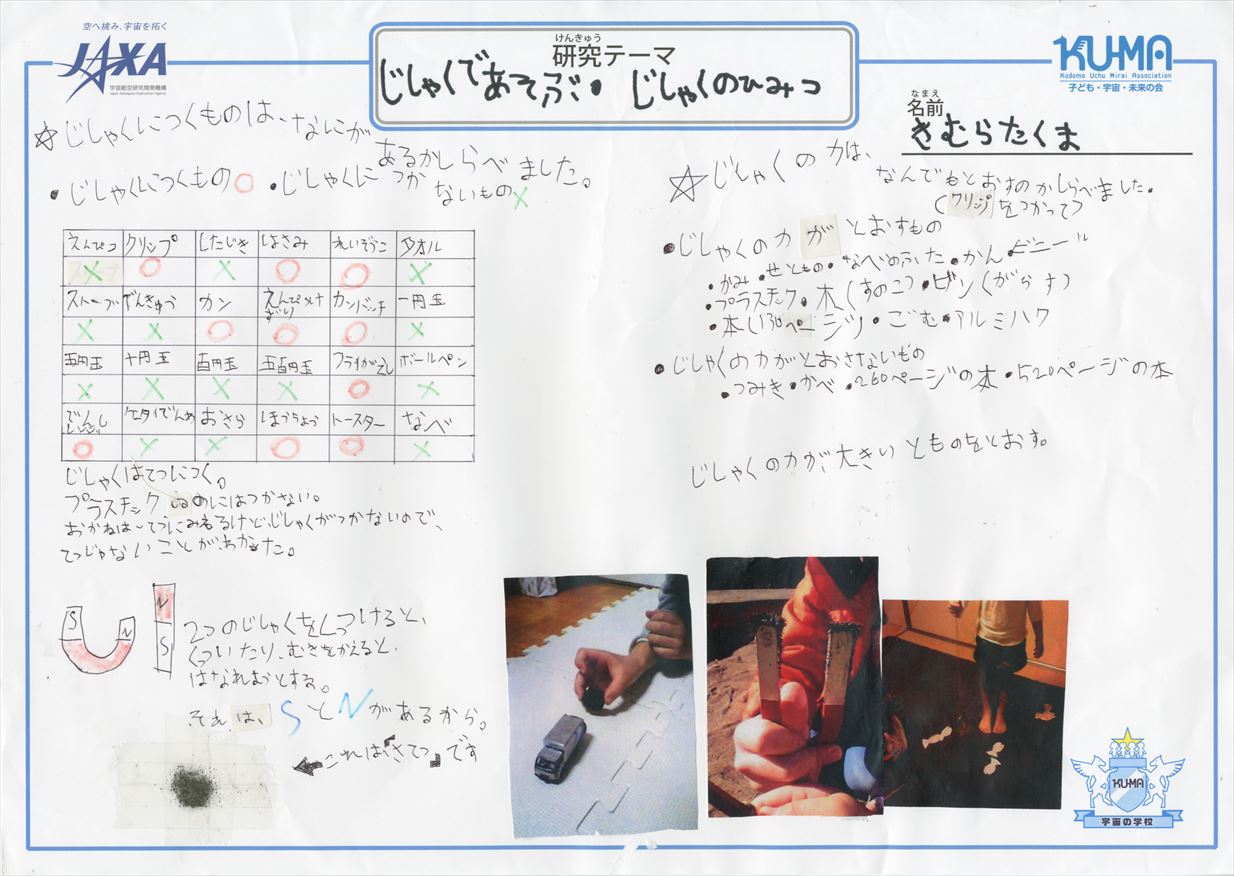 空へ挑み、宇宙を拓く
JAXA
宇宙航空研究開発機構
Japan Aerospace Exploration Agency
けんきゅう
研究テーマ
じしゃくであそぶ・じしゃくのひみつ
KU-MA
Kodomo Uchu Mirai Association
子ども・宇宙・未来の会
なまえ
名前
きむらたくま
☆じしゃくにつくものは、なにが
あるかしらべました。
・じしゃくにつくもの○ ・じしゃくにつか
ないもの×
えんぴつ クリップ したじき はさみ れいぞうこ タオル
× ○ × ○ ○ ×
ストーブ でんきゅう カン えんぴつけずり カンバッチ 一円玉
× × ○ ○ ○ ×
五円玉 十円玉 百円玉 五百円玉 フライがえし ボールペン
× × × × ○ ×
でんし おさら ほうちょう トースター なべ
○ × × ○ ○ ×
じしゃくはてつにつく。
プラスチック のにはつかない。
おかねは〜てつにみえるけど、じしゃくがつかないので、
てつじゃないことが、わかった。
S N
N S
2つのじしゃくをくっつけると、
くっついたり、むきをかえると、
はなれようとする。
それは、SとNがあるから。
←これは「さてつ」です
☆じしゃくの力は、
なんでもとおすのかしらべました。
(クリップをつかって)
・じしゃくの力がとおすもの
・かみ・せともの・なべのふた・かん・ビニール
・プラスチック・木(すのこ)・ビン(がらす)
・本(130ページ)・ごむ・アルミハク
・じしゃくの力がとおさないもの
・つみき・かべ・260ページの本・520ページの本
じしゃくの力が大きいとものをとおす。
KUMA
宇宙の学校